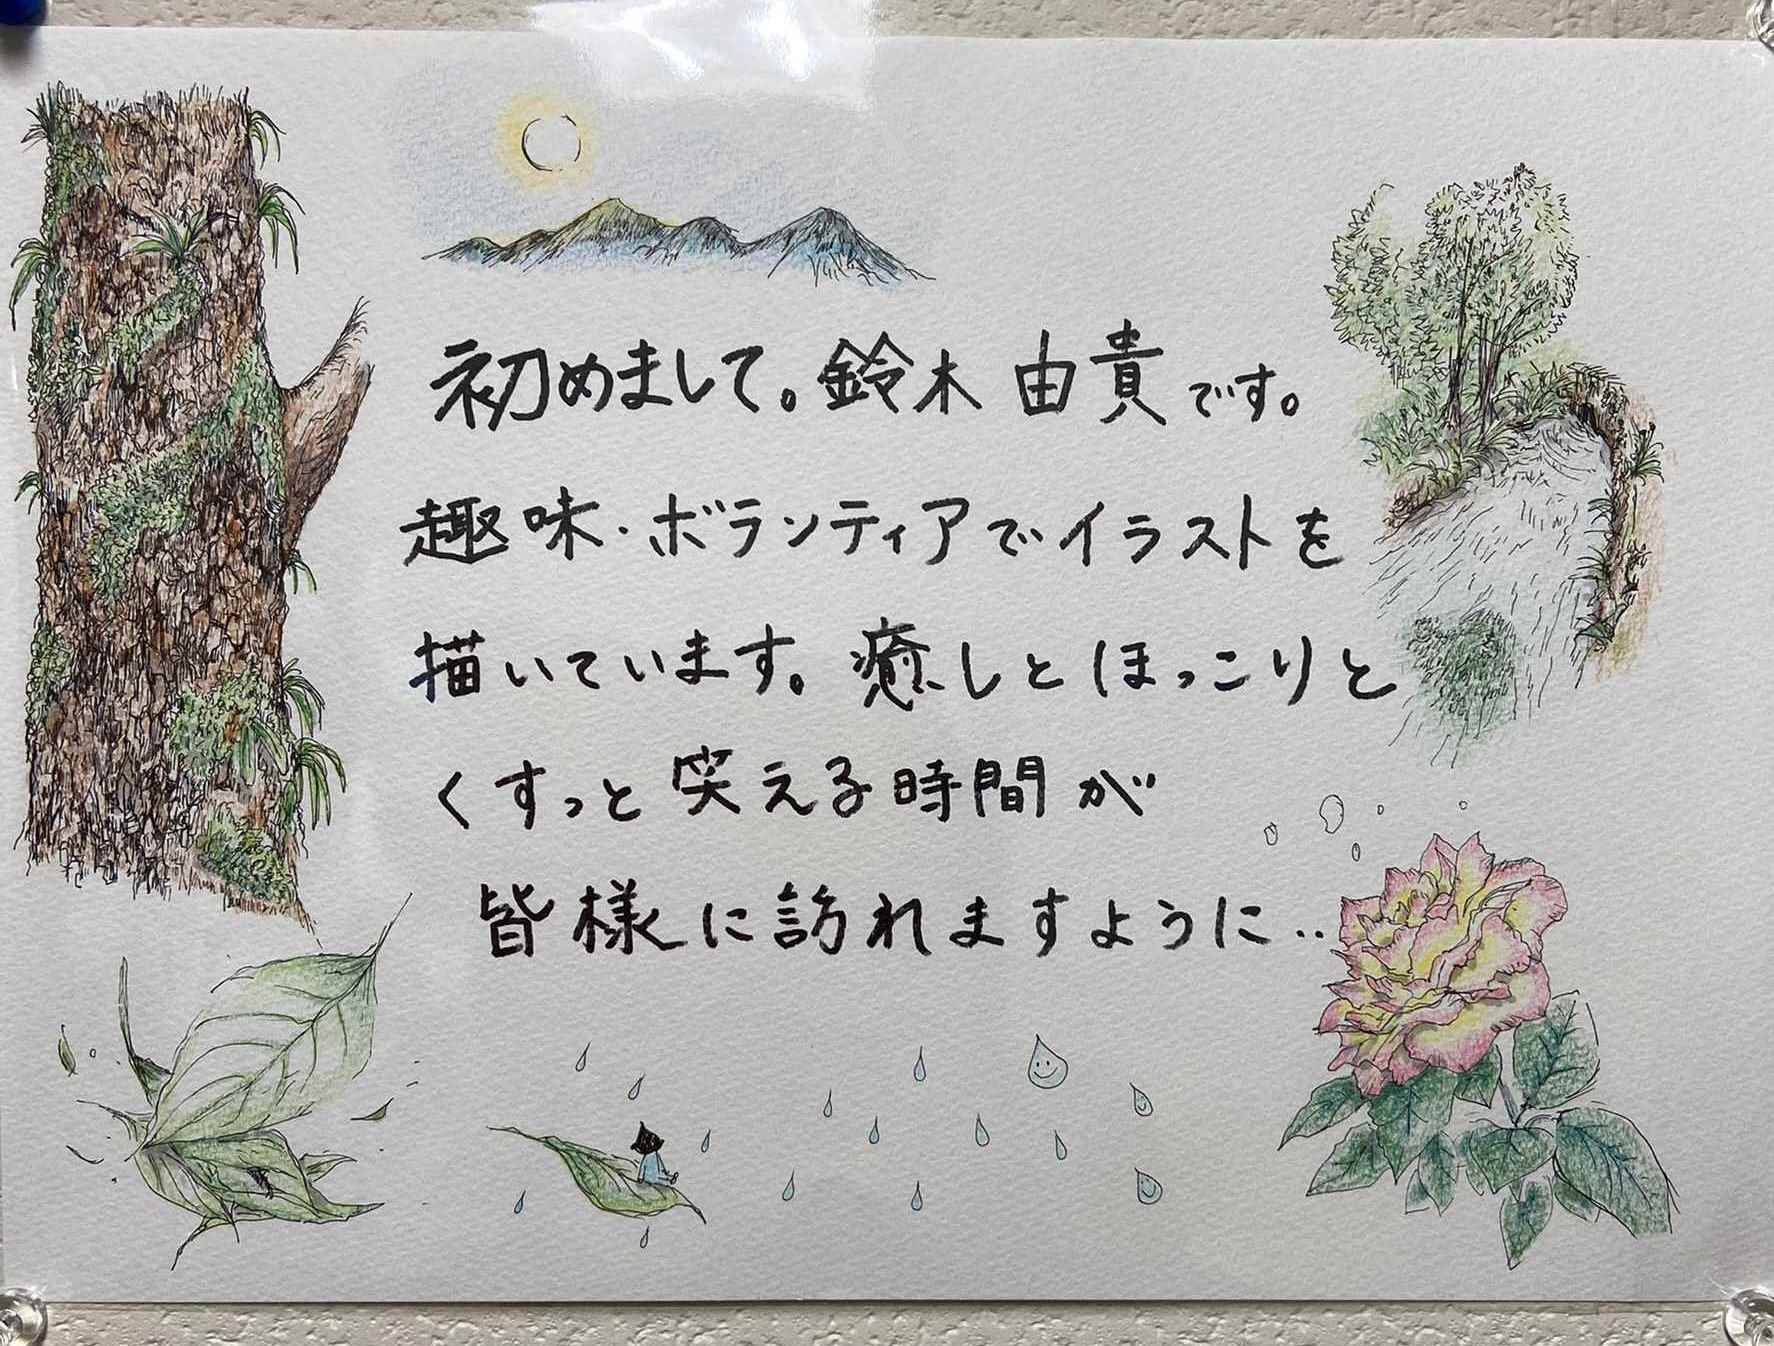 初めまして。鈴木 由貴です。
趣味・ボランティアでイラストを
描いています。癒しとほっこりと
くすっと笑える時間が
皆様に訪れますように‥